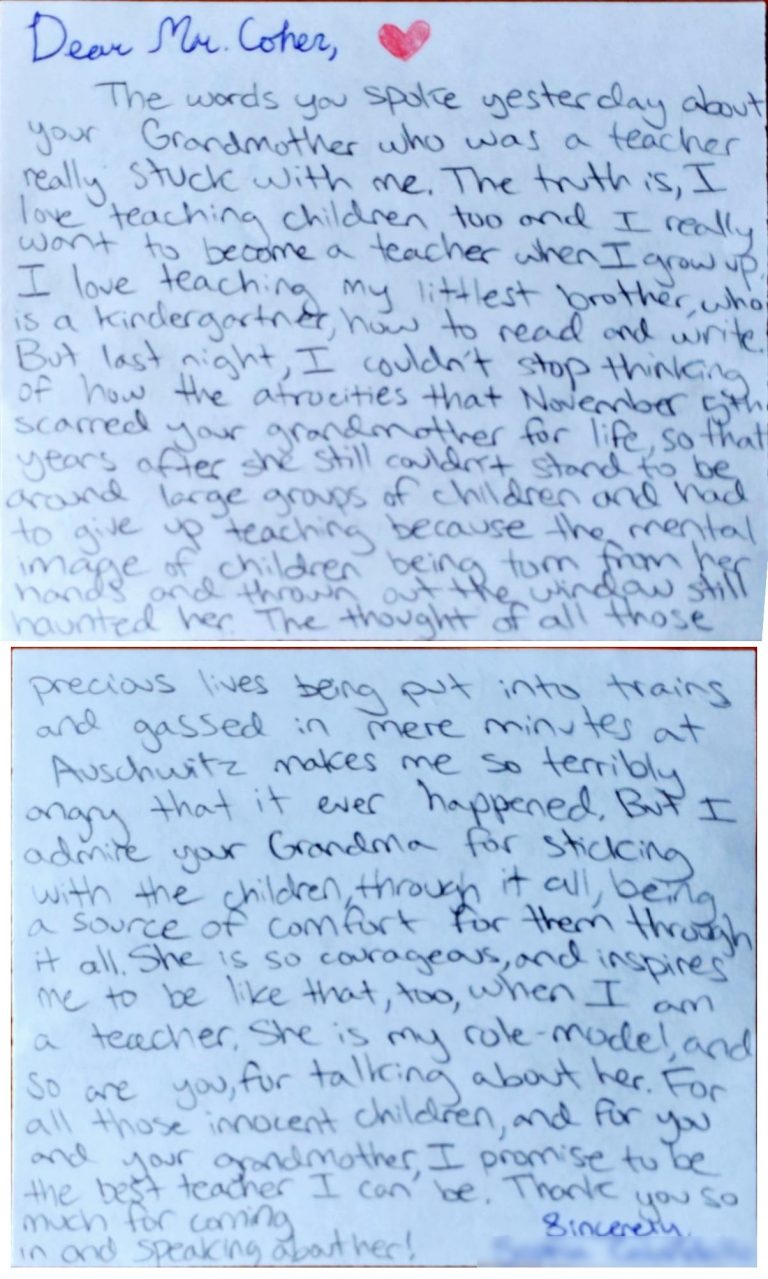 Dear Mr. Coher,
The words you spoke yesterday about
your Grandmother who was a teacher
really stuck with me. The truth is, I
love teaching children too and I really
want to become a teacher when I grow up.
I love teaching my littlest brother, who
is a kindergartner, how to read and write.
But last night, I couldn't stop thinking
of how the atrocities that November 5th
scarred your grandmother for life, so that
years after she still couldn't stand to be
around large groups of children and had
to give up teaching because the mental
image of children being torn from her
hands and thrown out the window still
haunted her. The thought of all those
precious lives being put into trains
and gassed in mere minutes at
Auschwitz makes me so terribly
angry that it ever happened. But I
admire your Grandma for sticking
with the children, through it all, being
a source of comfort for them through
it all. She is so courageous, and inspires
me to be like that, too, when I am
a teacher. She is my role-model, and
so are you, for talking about her. For
all those innocent children, and for you
and your grandmother, I promise to be
the best teacher I can be. Thank you so
much for coming
in and speaking about her!
Sincerely,